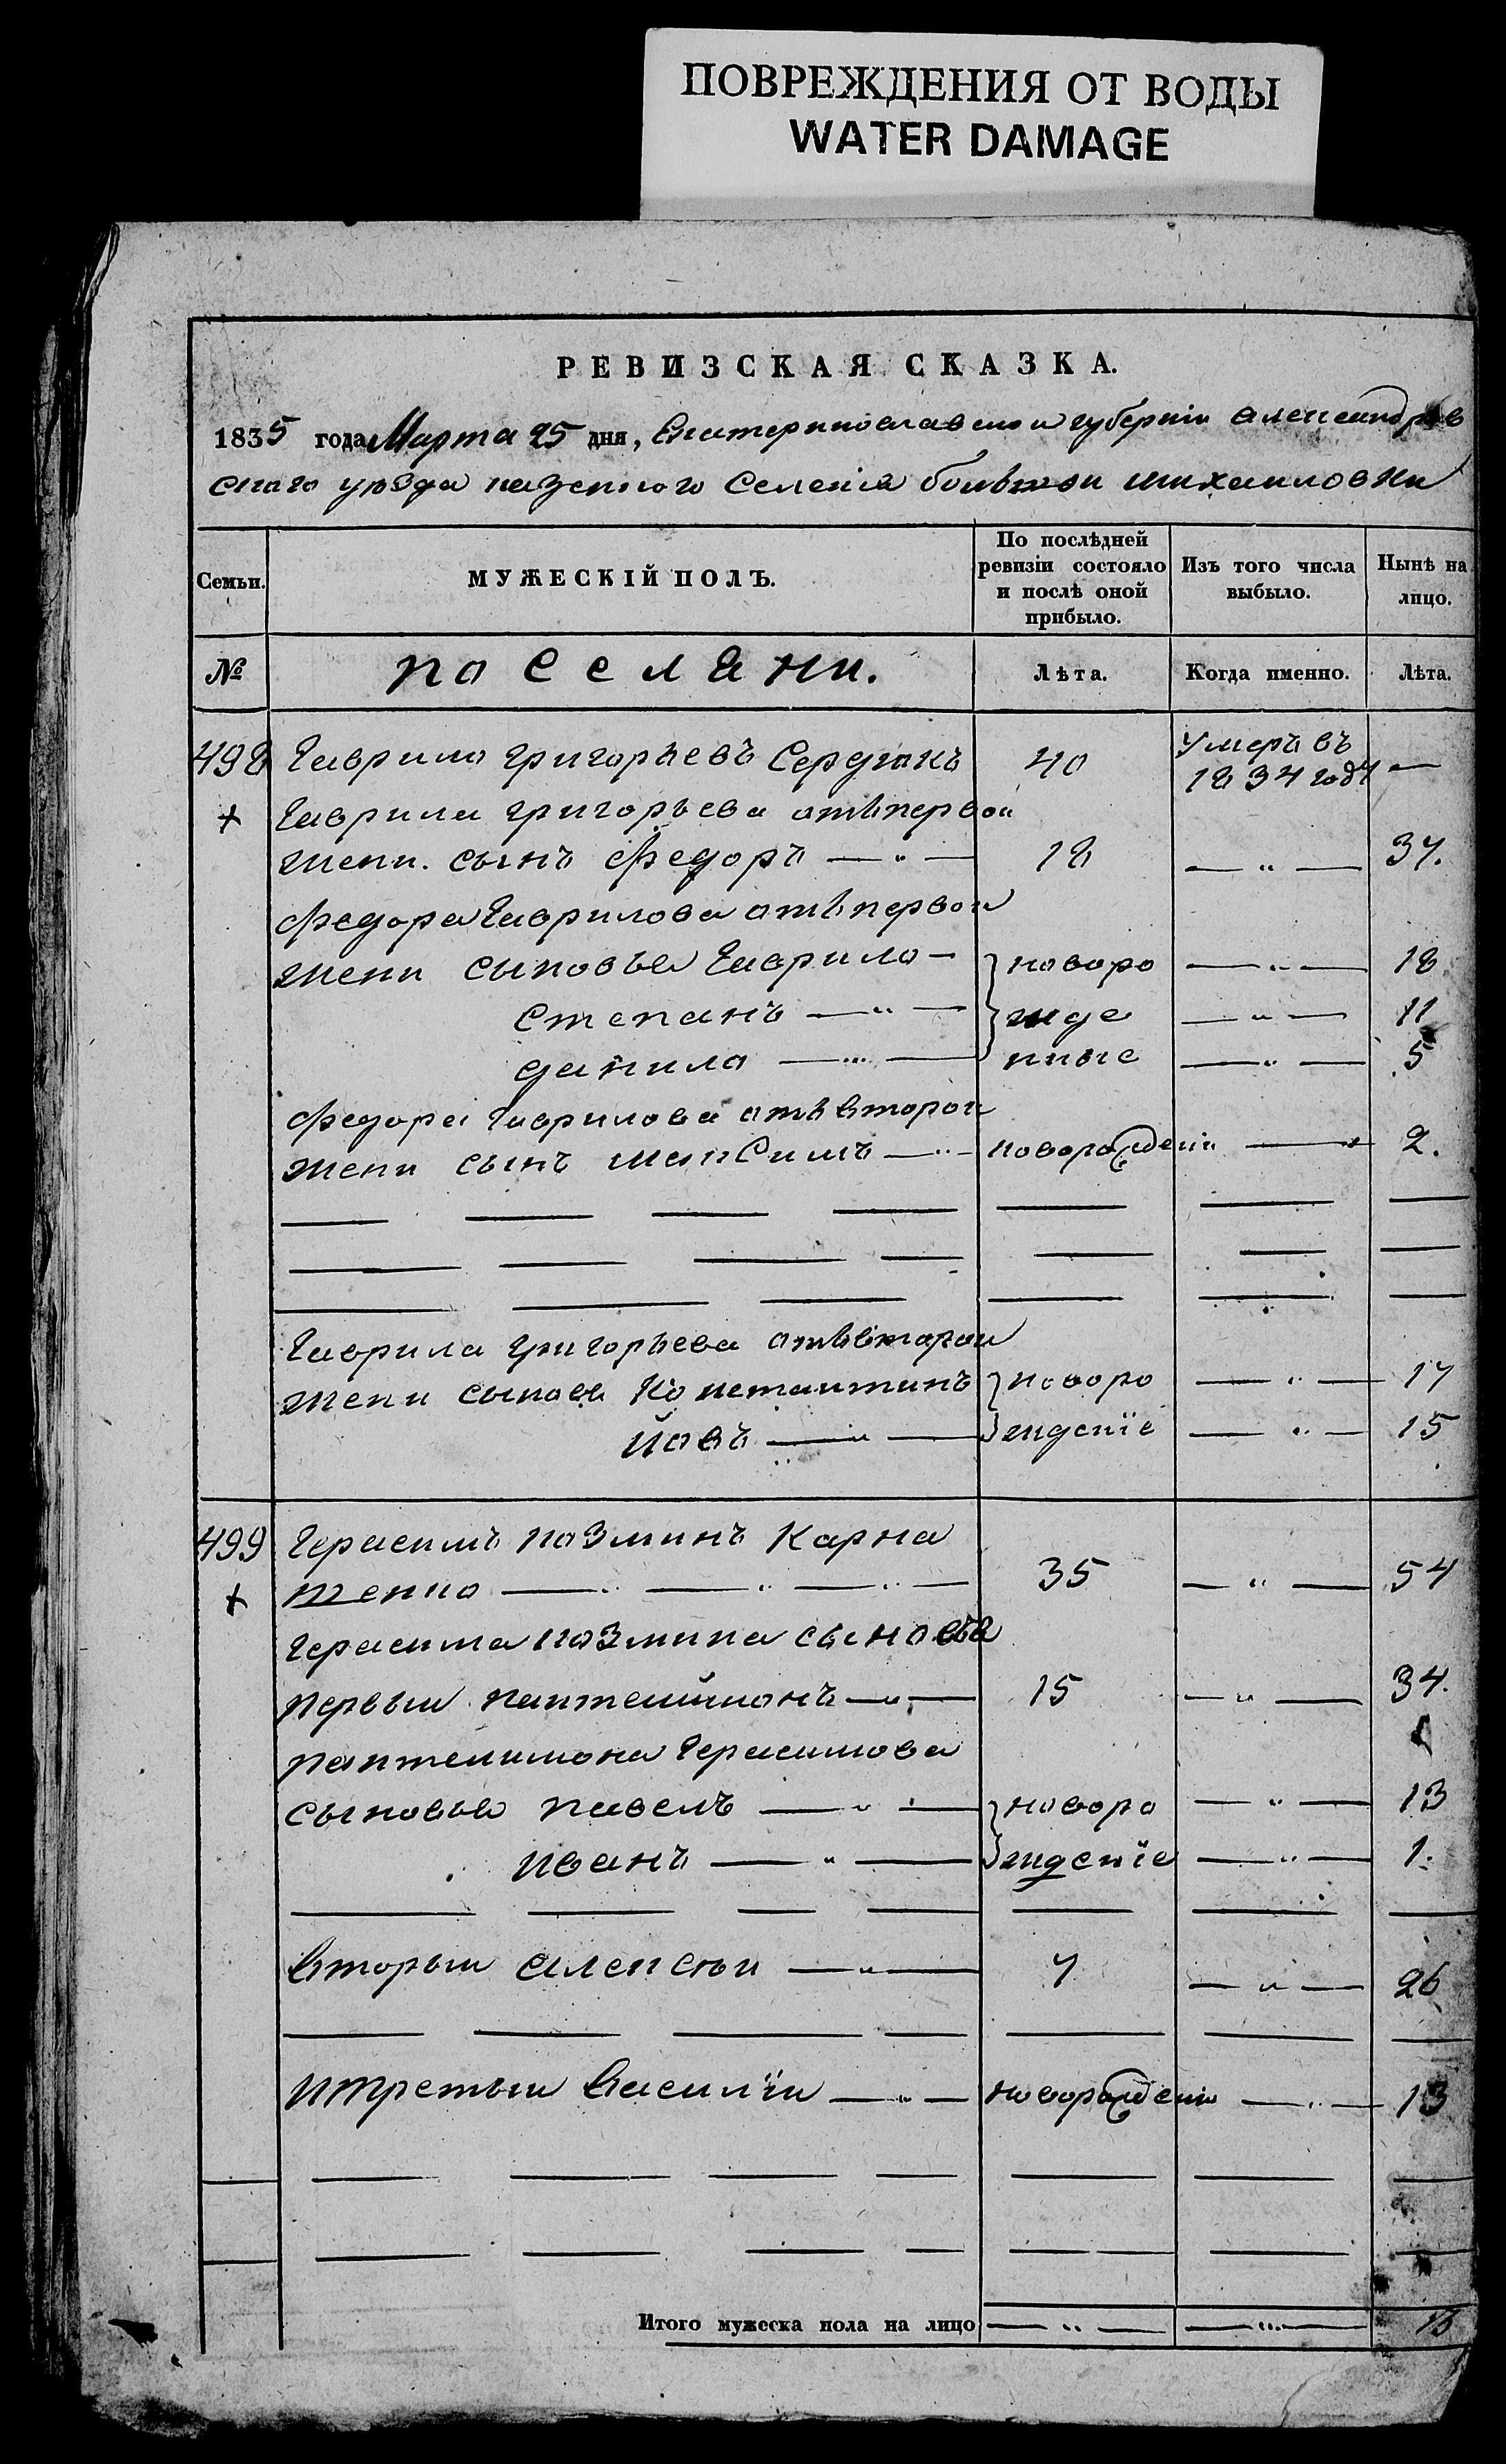 ПОВРЕЖДЕНИЯ ОТ ВОДЫ
WATER DAMAGE
РЕВИЗСКАЯ СКАЗКА.
1835 года Марта 25 дня, Екатеринославской губерніи Александров
скаго уѣзда казенного Селенія большои михаиловки
Семьи. МУЖЕСКІЙ ПОЛЪ. По послѣдней ревизіи состояло и послѣ оной прибыло. Изъ того числа выбыло. Нынѣ на лицо.
№ поселяни. Лѣта. Когда именно. Лѣта.
498 Гаврило григорьевъ Сердюкъ 40 Умеръ въ 1834 году —
+ Гаврила григорьева отъ первои
жени. сынъ федоръ — " — 18 — " — 37.
федора Гаврилова отъ первои
жени сыновья Гаврило — новоро — " — 18
Степанъ — " — жде — " — 11
данило — " — нные — " — 5
федора Гаврилова отъ второи
жени сынъ макСимъ — " — новорожден — " — 2.
Гаврила григорьева отъ второи
жени синовя Константинъ новоро — " — 17
йовъ — " — жденіе — " — 15
499 Герасимъ козминъ Карна
+ тенко — " — " — " — 35 — " — 54
Герасима козмина сыновья
первыи пантелимонъ — " — 15 — " — 34.
пантелимона Герасимова
сыновья павелъ — " — новоро — " — 13
иванъ — " — жденіе — " — 1.
вторыи алексѣи — " — 7 — " — 26
итретыи василіи — " — новорожденн — " — 13
Итого мужеска пола на лицо — " — — " — 13